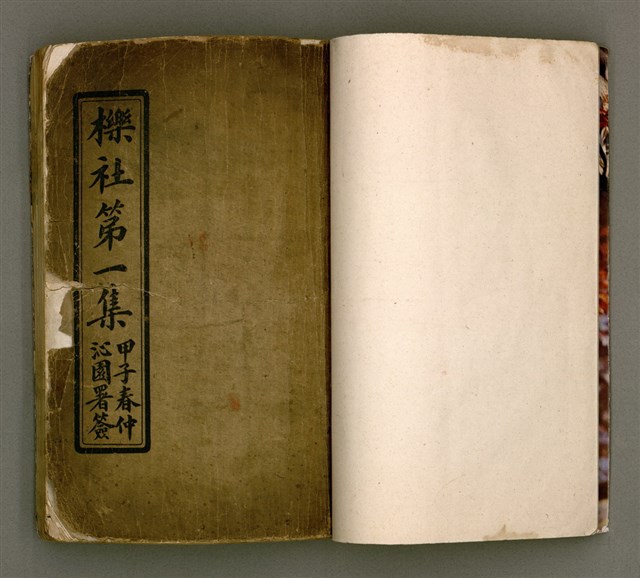 櫟社第一集
甲子春仲
沁園署簽